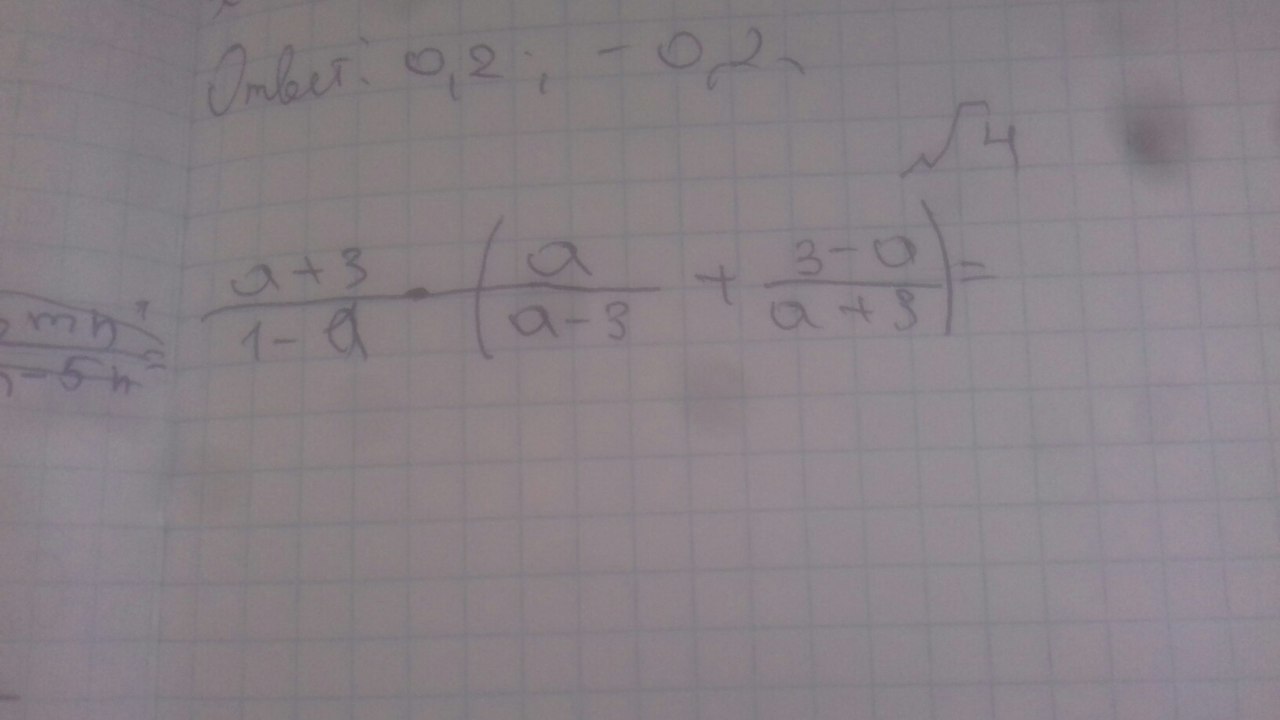 Ответ: 0,2; -0,2.
√4
\frac{a+3}{1-a} · ( \frac{a}{a-3} + \frac{3-a}{a+3} ) =